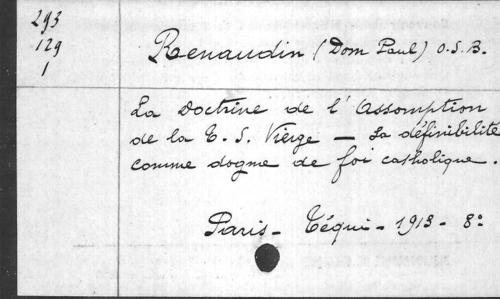 293
129
1
Renaudin (Dom Paul) O.S.B.
La Doctrine de l'Assomption
de la T. S. Vierge — Sa définibilité
comme dogme de foi catholique.
Paris - Téqui - 1913 - 8°